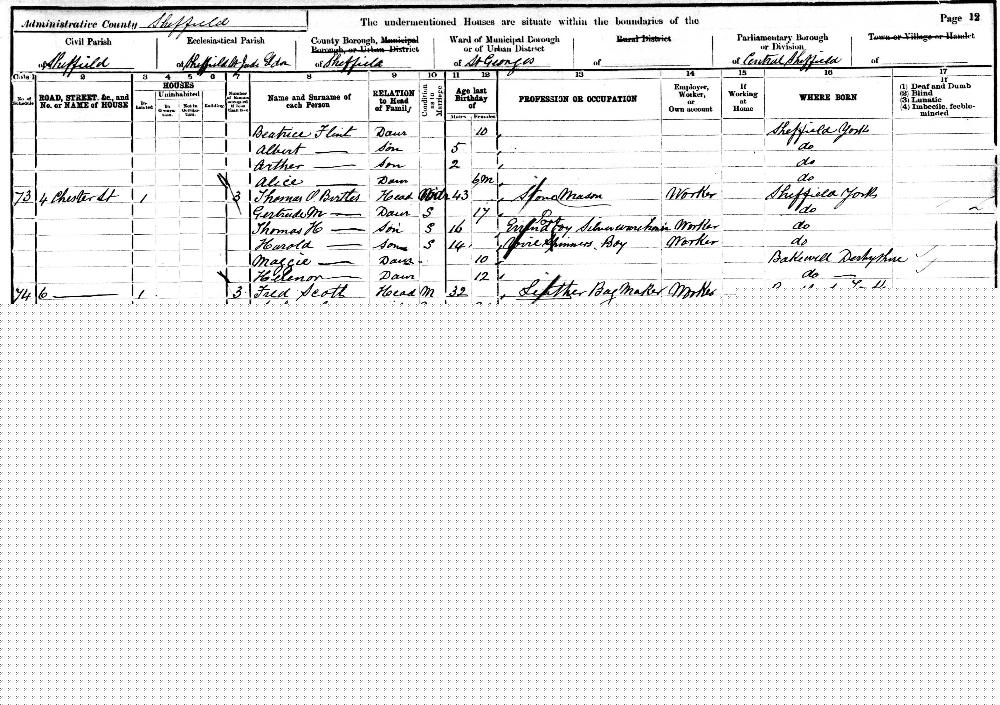 Administrative County Sheffield
The undermentioned Houses are situate within the boundaries of the
Page 12
Civil Parish
of Sheffield
Ecclesiastical Parish
of Sheffield St Jude
County Borough, Municipal Borough, or Urban District
of Sheffield
Ward of Municipal Borough or of Urban District
of St Georges
Rural District
of
Parliamentary Borough or Division
of Central Sheffield
Town or Village or Hamlet
of
2 3 4 5 6 7 8 9 10 11 12 13 14 15 16 17
No. of Schedule
ROAD, STREET, &c., and No. or NAME of HOUSE
HOUSES
Inhabited
Uninhabited
In Occupation
Not in Occupation
Building
Name and Surname of each Person
RELATION to Head of Family
Condition as to Marriage
Age last Birthday of
Males Females
PROFESSION OR OCCUPATION
Employer, Worker, or Own account
If Working at Home
WHERE BORN
If
(1) Deaf and Dumb
(2) Blind
(3) Lunatic
(4) Imbecile, feeble-minded
Beatrice Flint Daur 10 Sheffield York
Albert — Son 5 do
Arther — Son 2 do
Alice Daur 6m do
73 4 Chester St 1 3 Thomas P Head 43 Stone Mason Worker Sheffield York
Gertrude M — Daur S 17 do
Thomas H — Son S 16 Errand Boy Worker do
Harold — Son S 14 Boy Worker do
Maggie — Daur 10 Bakewell Derbyshire
Daur 12 do —
74 6 — 1 3 Fred Scott Head M 32 Bag Maker Worker